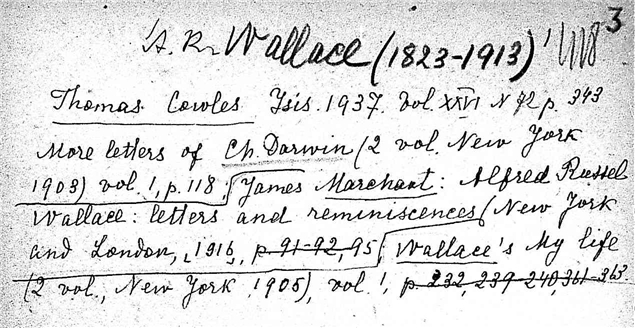 A. R. Wallace (1823-1913) 3
Thomas Cowles Isis. 1937. Vol. XXVI N 72 p. 343
More letters of Ch. Darwin (2 vol. New York
1903) vol. 1, p. 118; James Marchant: Alfred Russel
Wallace: letters and reminiscences (New York
and London, 1916, p. 91-92, 95; Wallace's My life
(2 vol., New York 1905), vol. 1, p. 232, 239-240, 361-363.